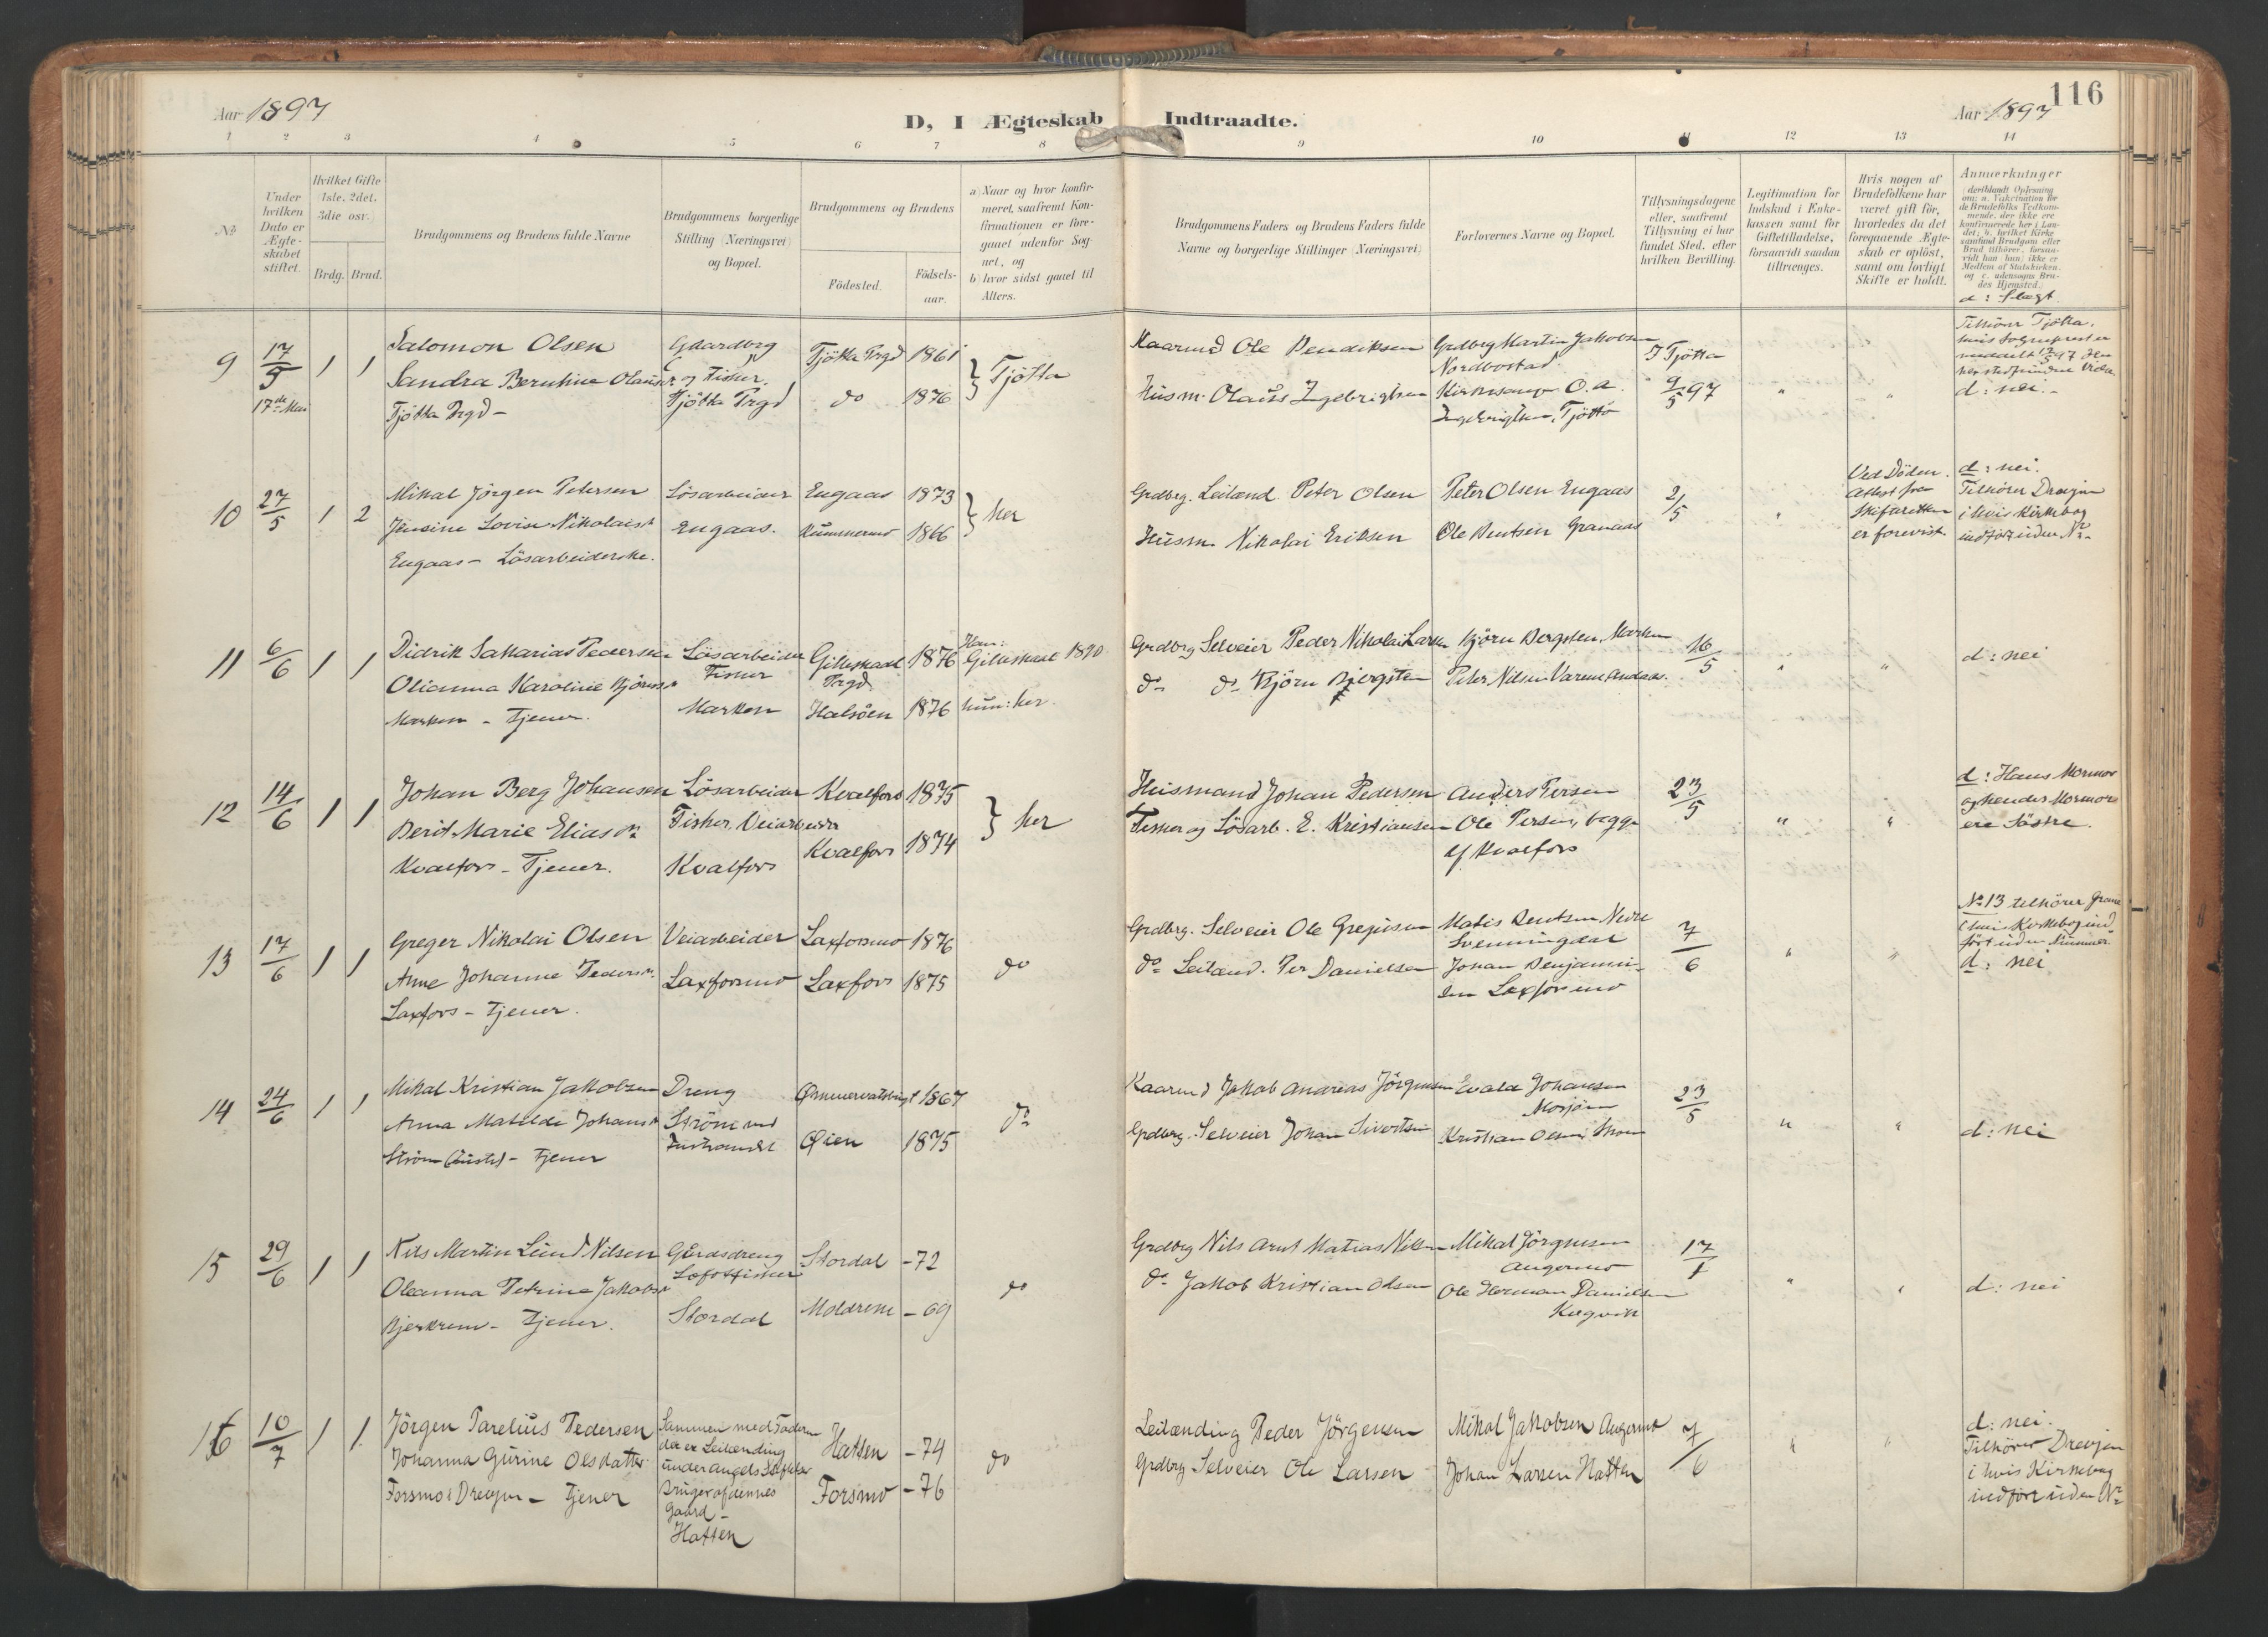 Aar 1897
D, I Ægteskab Indtraadte.
Aar 1897
116
1 2 3 4 5 6 7 8 9 10 11 12 13 14
No
Under hvilken Dato er Ægteskabet stiftet.
Hvilket Gifte 1ste, 2det, 3die osv.
Brdg. Brud.
Brudgommens og Brudens fulde Navne
Brudgommens borgerlige Stilling (Næringsvei) og Bopæl.
Brudgommens og Brudens
Fødested.
Fødselsaar.
a) Naar og hvor konfirmeret, saafremt Konfirmationen er foregaaet udenfor Sognet, og
b) hvor sidst gaaet til Alters.
Brudgommens Faders og Brudens Faders fulde Navne og borgerlige Stillinger (Næringsvei)
Forlovernes Navne og Bopæl.
Tillysningsdagene eller, saafremt Tillysning ei har fundet Sted, efter hvilken Bevilling.
Legitimation for Indskud i Enkekassen samt for Giftetilladelse, forsaavidt saadan tiltrænges.
Hvis nogen af Brudefolkene har været gift før, hvorledes da det foregaaende Ægteskab er opløst, samt om lovligt Skifte er holdt.
Anmerkninger
(deriblandt Oplysning om: a. Vakcination for de Brudefolks Vedkommende, der ikke ere konfirmerede her i Landet; b. hvilket Kirkesamfund Brudgom eller Brud tilhører, forsaavidt han (hun) ikke er Medlem af Statskirken, og c. udensogns Brudes Hjemsted.
d: Slægt.
9 17/5 1 1 Salomon Olsen Gaardbrg Tjøtta Prgd 1861 } Tjøtta Kaarmd Ole Bendiksen Grdbrg Martin Jakobsen
17de Mai Sandra Bernhine Olausd og Fisker. do 1876 Nordbostad. I Tjøtta
Tjøtta Prgd - Tjøtta Prgd Husm. Olaus Ingebrigtsen Kirkesanger O. A. 9/5 97 " "
Ingebrigtsen, Tjøtta
Tilhører Tjøtta.
hvis Sogneprest er
meddelt
d: nei.-
10 27/5 1 2 Mikal Jörgen Petersen Lösarbeider Engaas 1873 } her Grdbrg. Leilænd. Peter Olsen Peter Olsen Engaas 2/5 "
Jensine Lovise Nikolaisd Engaas. 1866 Husm. Nikolai Eriksen Ole Bentsen Granaas
Engaas - Lösarbeiderske.
Ved Döden.
Attest fra
Skifteretten
er forevist.
d: nei.
Tilhörer Drevjen
i hvis Kirkebog
indført uden No.
11 6/6 1 1 Didrik Sakarias Pedersen Lösarbeider Gildeskaal 1876 Han: Gildeskaal 1890 Grdbrg Selveier Peder Nikolai Larsen Björn Bergsten, Marken 16/5 " " d: nei
Olianna Karoline Björnsd Fisker Prgd do do Björn Bergsten Peter Nilsen
Marken - Tjener. Marken Halsöen 1876 hun: her.
12 14/6 1 1 Johan Berg Johansen Lösarbeider Kvalfors 1875 } her Husmand Johan Pedersen Anders Persen 23/5 " "
Berit Marie Eliasd. Fisker, Veiarbeider Kvalfors 1874 Fisker og Lösarb. E. Kristiansen Ole Persen, begge
Kvalfors - Tjener. Kvalfors af Kvalfors
d: Hans Mormor
og hendes Mormor
ere Söstre.
13 17/6 1 1 Greger Nikolai Olsen Veiarbeider Laxforsmo 1876 do Grdbrg. Selveier Ole Grejusen Matis Bentsen Nedre 7/6 " "
Anne Johanne Pedersd. Laxforsmo Laxfors 1875 do Leilænd. Per Danielsen Svenningdal
Laxfors - Tjener. Johan Benjaminsen Laxforsmo
No 13 tilhörer Grane
i hvis Kirkebog ind-
fört uden Nummer.
d: nei
14 24/6 1 1 Mikal Kristian Jakobsen Dreng 1867 do Kaarmd Jakob Andreas Jörgensen Evald Johansen 23/5 " " d: nei
Anna Matilde Johansd Ström ved Øien 1875 Mosjöen
Ström - Tjener Grdbrg. Selveier Johan Sivertsen Kristian Olsen
15 29/6 1 1 Nils Martin Lund Nilsen Gårdsdreng Stordal -72 do Grdbrg Nils Arnt Matias Nilsen Mikal Jörgensen 17/ " " d: nei
Oleanna Petrine Jakobsd Lofotfisker Angermo
Bjerkrem - Tjener. Stordal Moldrem -69 do Jakob Kristian Olsen Ole Herman Danielsen
16 10/7 1 1 Jörgen Parelius Pedersen Sammen med Faderen Hatten -74 do Leilænding Peder Jörgensen Mikal Jakobsen Angermo 7/6 " "
Johanna Gurine Olsdatter der er Leilænding
Forsmo i Drevjen - Tjener under Angels Forsmo -76 Grdbrg Selveier Ole Larsen Johan Larsen Hatten
Bruger af dennes
Gaard -
Hatten
d: nei.
Tilhörer Drevjen
i hvis Kirkebog
indfört uden No